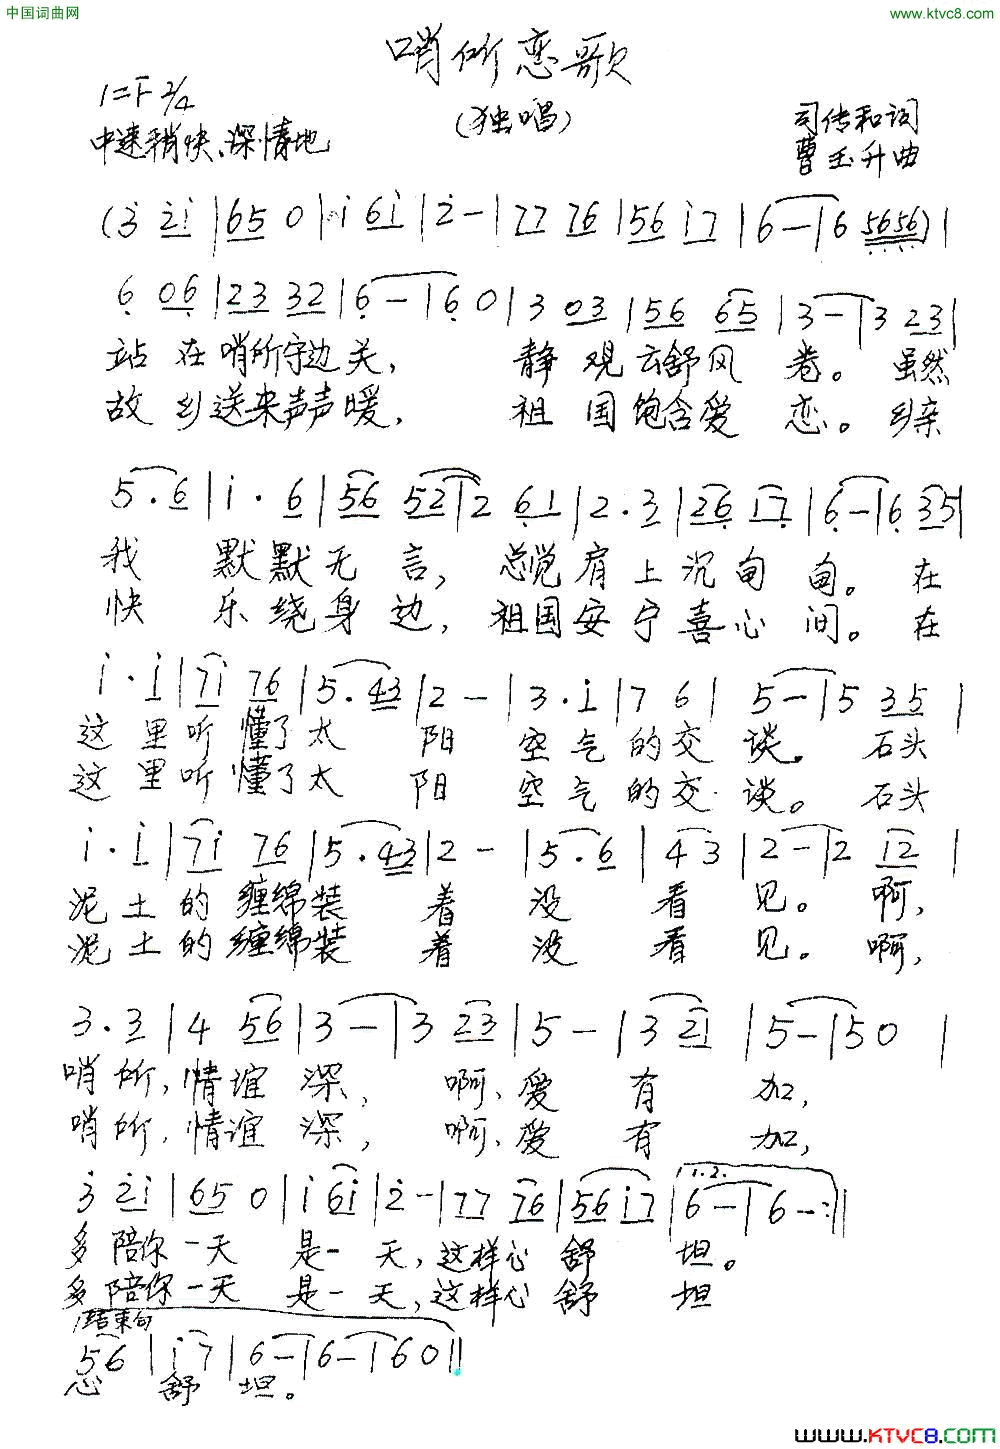 中国词曲网
www.ktvc8.com
哨所恋歌
1=F 2/4
(独唱)
中速稍快、深情地
司传和词
曹玉升曲
(3 2 1 | 6 5 0 | 1 6 1 | 2 - | 7 7 7 6 | 5 6 1 7 | 6 - | 6 5656) |
6 0 6 | 2 3 3 2 | 6 - | 6 0 | 3 0 3 | 5 6 6 5 | 3 - | 3 2 3 |
站在哨所守边关, 静观云舒风卷。虽然
故乡送来声声暖, 祖国饱含爱恋。乡亲
5 . 6 | 1 . 6 | 5 6 5 2 | 2 6 1 | 2 . 3 | 2 6 1 7 | 6 - | 6 3 5 |
我默默无言, 总觉肩上沉甸甸。在
快乐绕身边, 祖国安宁喜心间。在
1 . 1 | 7 1 7 6 | 5 . 4 3 | 2 - | 3 . 1 | 7 6 | 5 - | 5 3 5 |
这里听懂了太阳空气的交谈。石头
这里听懂了太阳空气的交谈。石头
1 . 1 | 7 1 7 6 | 5 . 4 3 | 2 - | 5 . 6 | 4 3 | 2 - | 2 1 2 |
泥土的缠绵装着没看见。啊,
泥土的缠绵装着没看见。啊,
3 . 3 | 4 5 6 | 3 - | 3 2 3 | 5 - | 3 2 1 | 5 - | 5 0 |
哨所,情谊深, 啊、爱有加,
哨所,情谊深, 啊、爱有加,
3 2 1 | 6 5 0 | 1 6 1 | 2 - | 7 7 7 6 | 5 6 1 7 | 1.2. 6 - | 6 - :||
多陪你一天是一天,这样心舒坦。
多陪你一天是一天,这样心舒坦
结束句
5 6 | 1 7 | 6 - | 6 - | 6 0 ||
心舒坦。
www.KTVC8.com